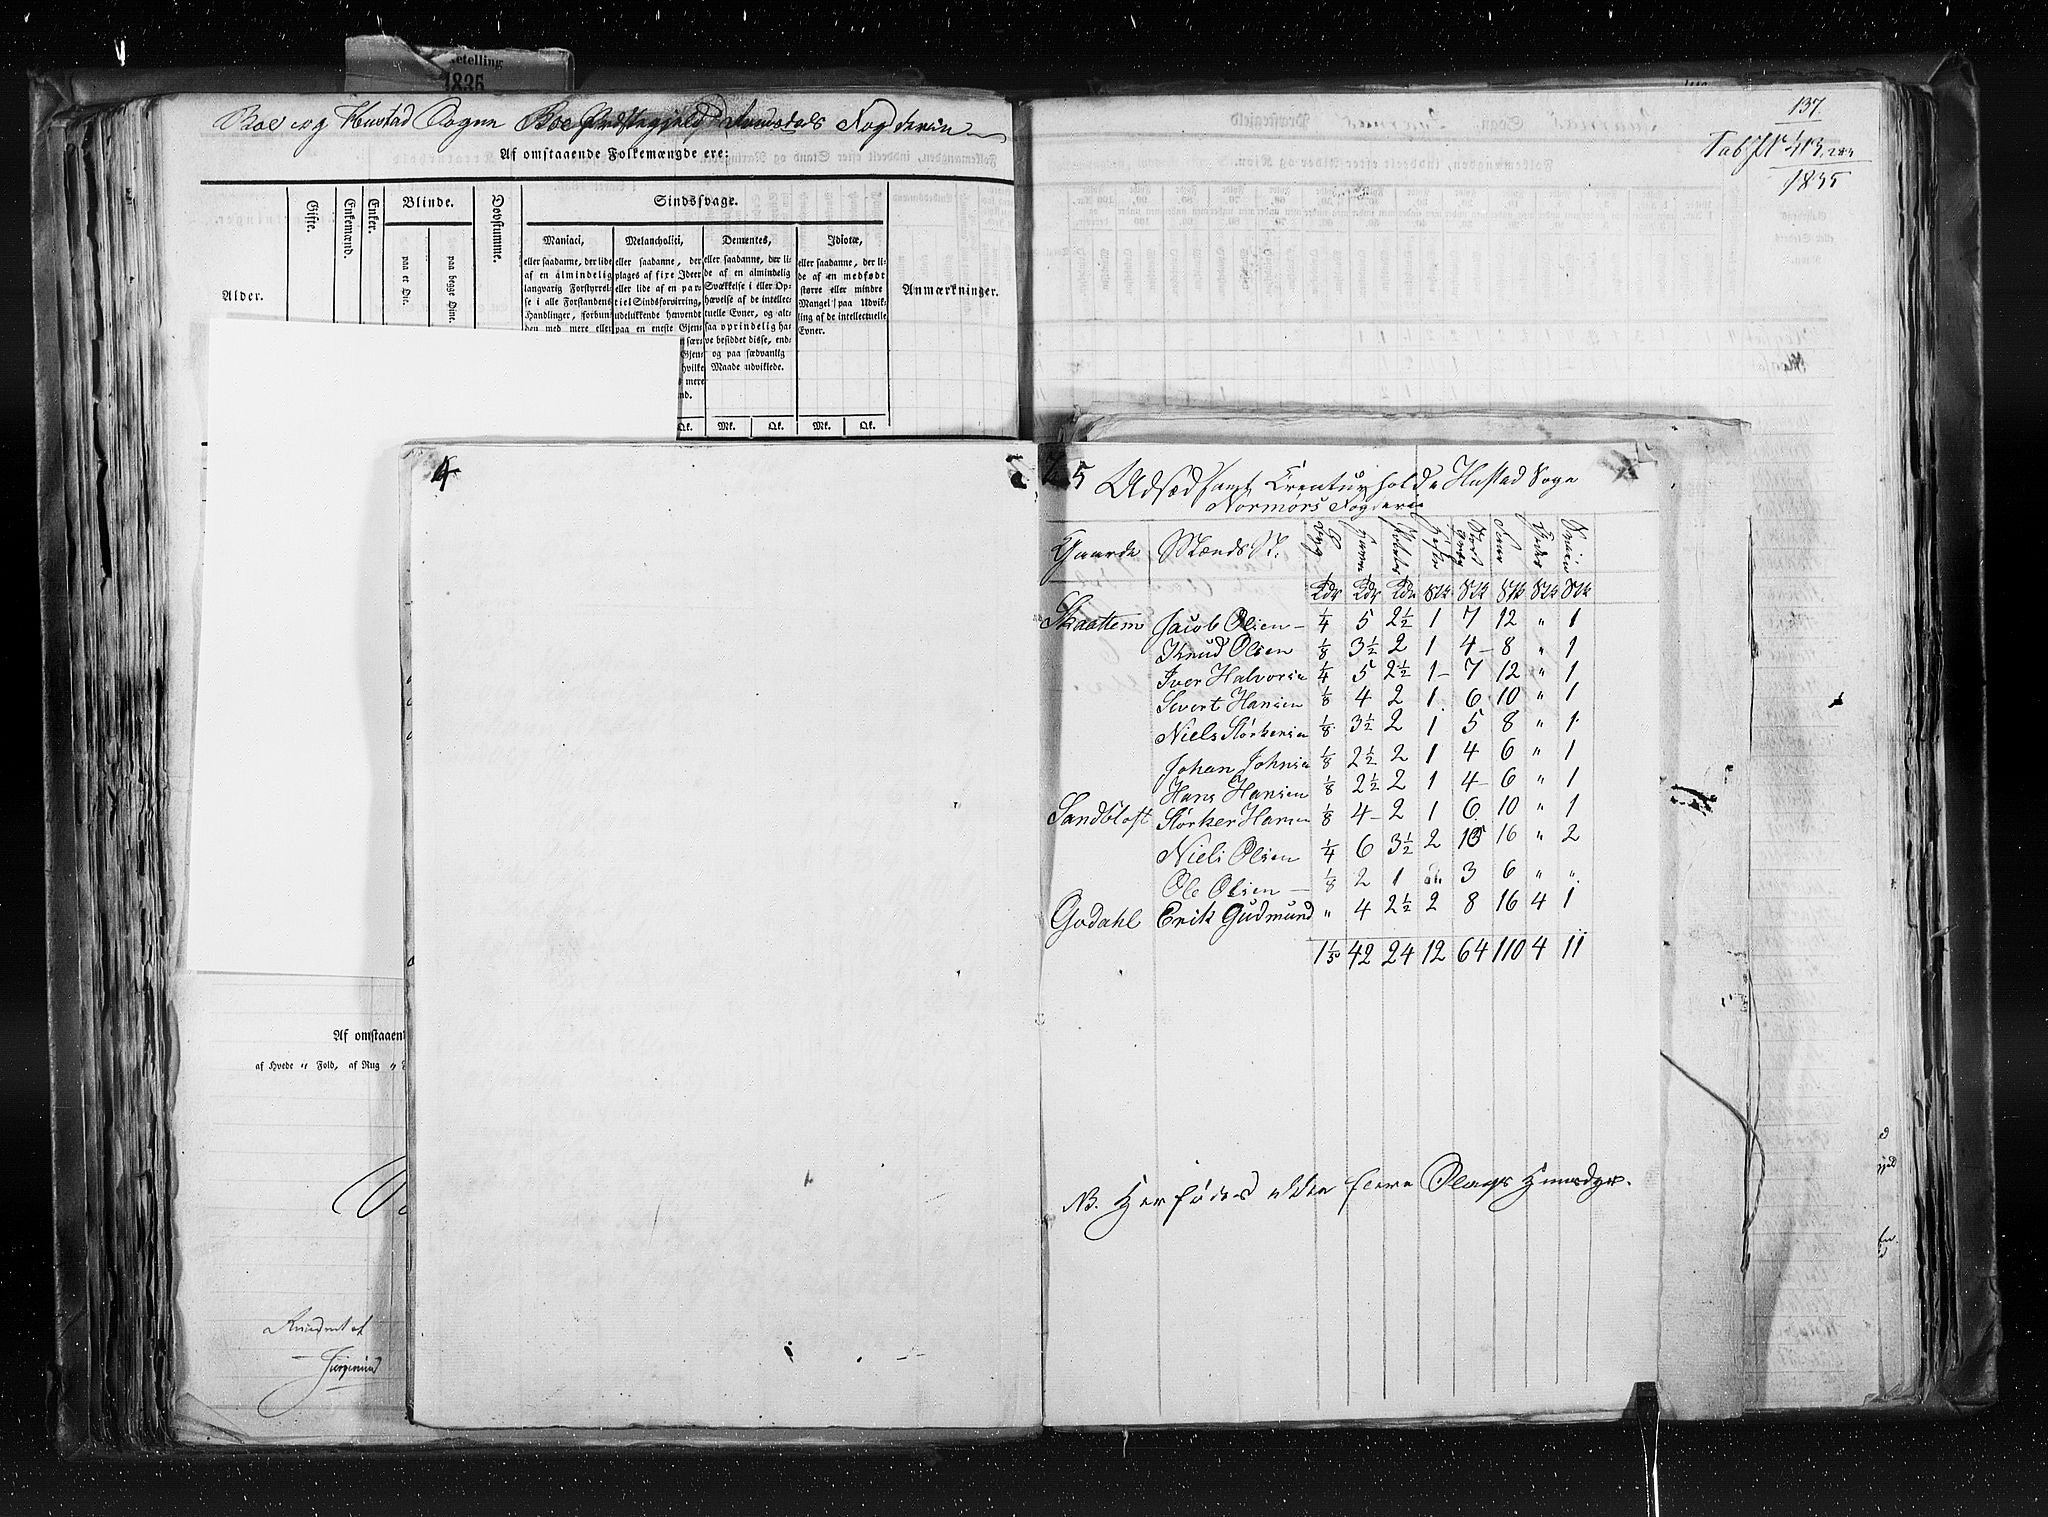 etelling
1835
Boe og Hustad Sogne Boe Præstegjeld Romsdals Fogderie
Af omstaaende Folkemængde ere:
Alder.
Gifte.
Enkemænd.
Enker.
Blinde.
paa et Øie.
paa begge Øine.
Døvstumme.
Sindssvage.
Maniaci,
eller saadanne, der lide
af en almindelig
langvarig Forstyrrel-
se i alle Forstandens
Handlinger, forbun-
den med mere eller
Melancholici,
eller saadanne, der
plages af fixe Ideer
eller lide af en par-
tiel Sindsforvirring,
udelukkende henvendt
paa en eneste Gjen-
sær-
Gjen-
hvilke
mere
nd.
Dementes,
eller saadanne, der li-
de af en almindelig
Svækkelse i eller Op-
hævelse af de intellec-
tuelle Evner, og alt-
saa oprindelig ha-
ve besiddet disse, end-
og paa sædvanlig
Maade udviklede.
Idiotæ,
eller saadanne, der li-
de af en medfødt
større eller mindre
Mangel paa Udvik-
ling af de intellectuelle
Evner.
Anmærkninger.
Qk. Mk. Qk. Mk. Qk.
Af omstaaen
af Hvede " Fold, af Rug "
137
1835
4
5 Udsæd samt Creaturhold i Hustad Sogn
Normørs Fogderie
Gaarde Mænds N. Byg Havre Poteter Heste Sau Geder Sviin
Tdr Tdr Tdr Stk Stk Stk Stk Stk
Skaattem Jacob Olsen – 1/4 5 2 1/2 1 7 12 " 1
Knud Olsen 1/8 3 1/2 2 1 4 – 8 " 1
Iver Halvorsen 1/4 5 2 1/2 1 – 7 12 " 1
Sivert Hansen 1/8 4 2 1 6 10 " 1
Niels Størkersen 1/8 3 1/2 2 1 5 8 " 1
Johan Johnsen 1/8 2 1/2 2 1 4 6 " 1
Hans Hansen 1/8 2 1/2 2 1 4 – 6 " 1
Sandbloft Størker Hansen 1/8 4 – 2 1 6 10 " 1
Niels Olsen 1/4 6 3 1/2 2 16 " 2
Ole Olsen – 1/8 2 1 3 6 " "
Godahl Erik Gudmund " 4 2 1/2 2 8 16 4 1
42 24 12 64 110 4 11
NB. Her fødes ikke flere Slags Huusdyr.